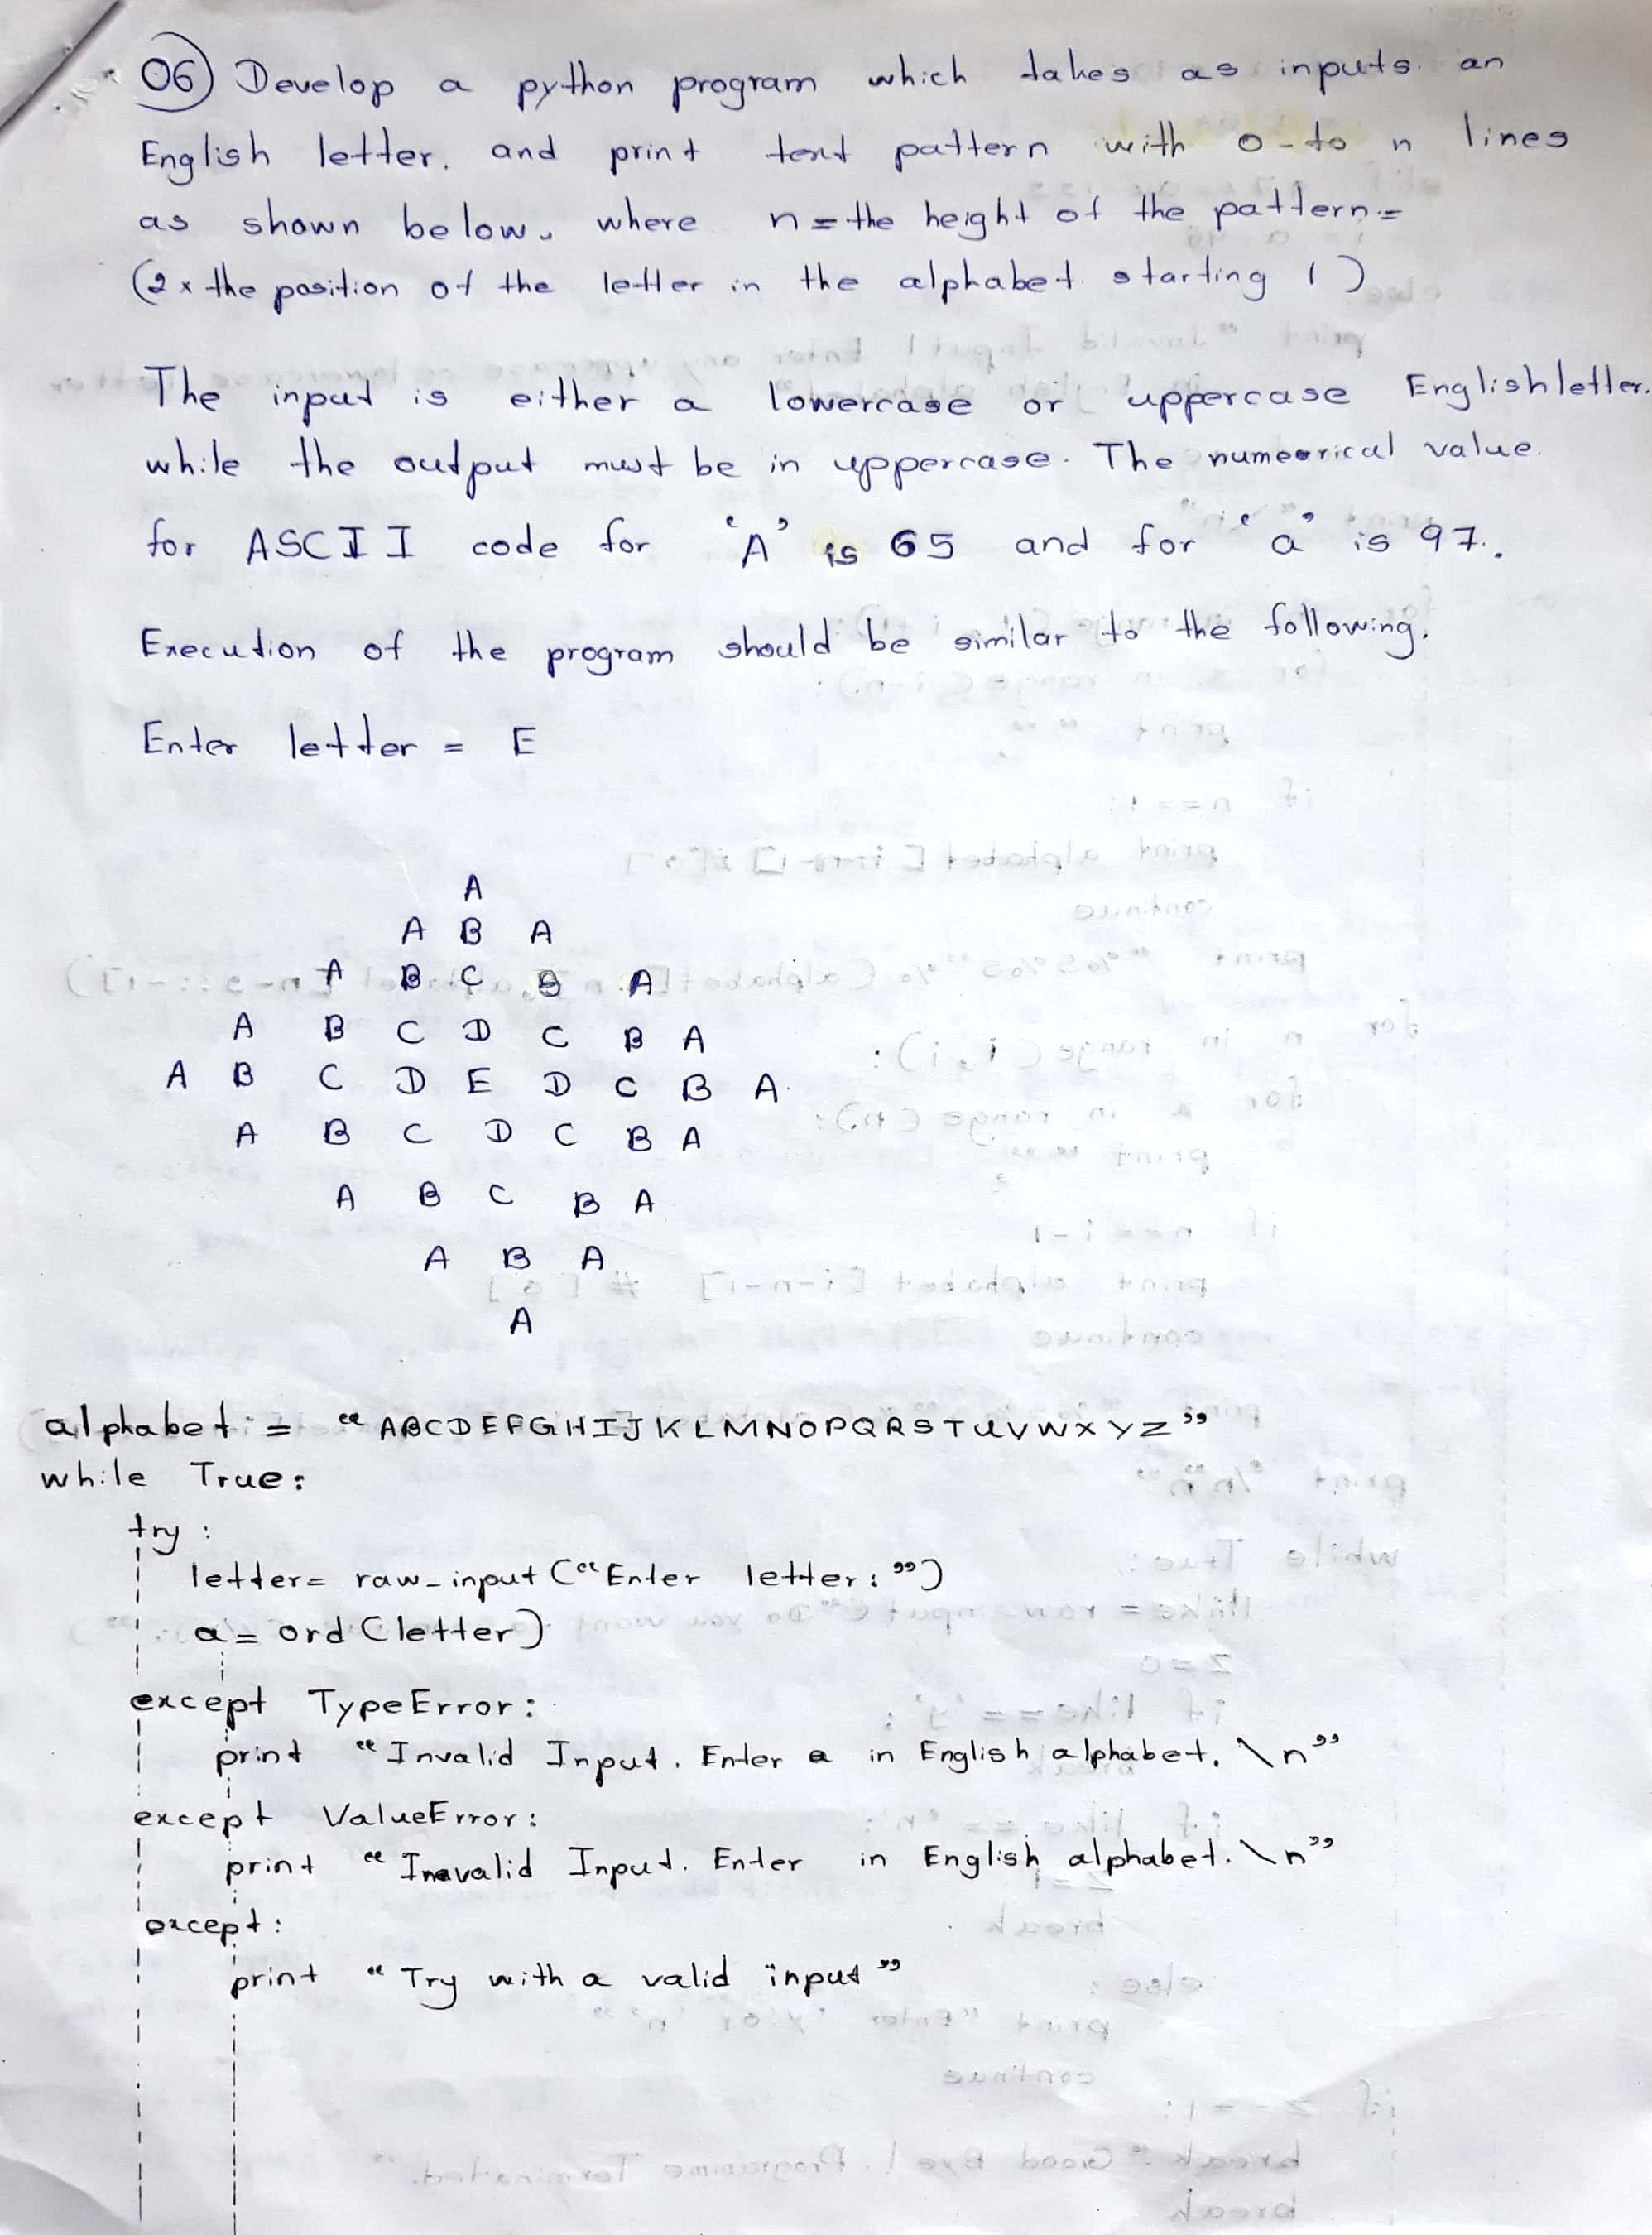 06 Develop a python program which takes as inputs. an
English letter. and print text pattern with 0-to n lines
as shown below. where n = the height of the pattern =
(2 x the position of the letter in the alphabet starting 1)
The input is either a lowercase or uppercase English letter.
while the output must be in uppercase. The numeorical value.
for ASCII code for 'A' is 65 and for 'a' is 97.
Execution of the program should be similar to the following.
Enter letter = E
A
A B A
A B C B A
A B C D C B A
A B C D E D C B A
A B C D C B A
A B C B A
A B A
A
alphabet = "ABCDEFGHIJKLMNOPQRSTUVWXYZ"
while True:
try:
letter= raw_input ("Enter letter: ")
a = ord (letter)
except TypeError:
print "Invalid Input. Enter a in English alphabet. \n"
except ValueError:
print "Inavalid Input. Enter in English alphabet. \n"
except:
print "Try with a valid input"